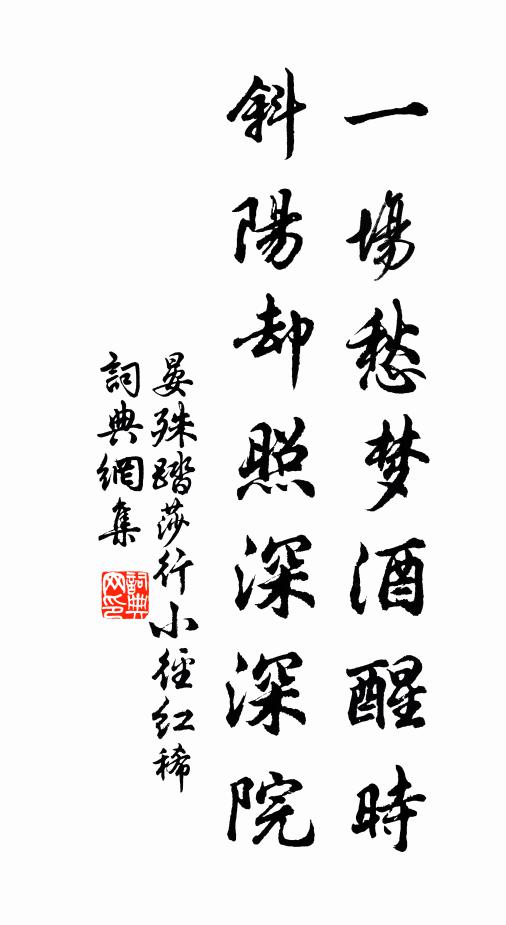 一場愁梦酒醒時
斜陽却照深深院
晏殊踏莎行小徑紅稀
詞典網集
詞典网印